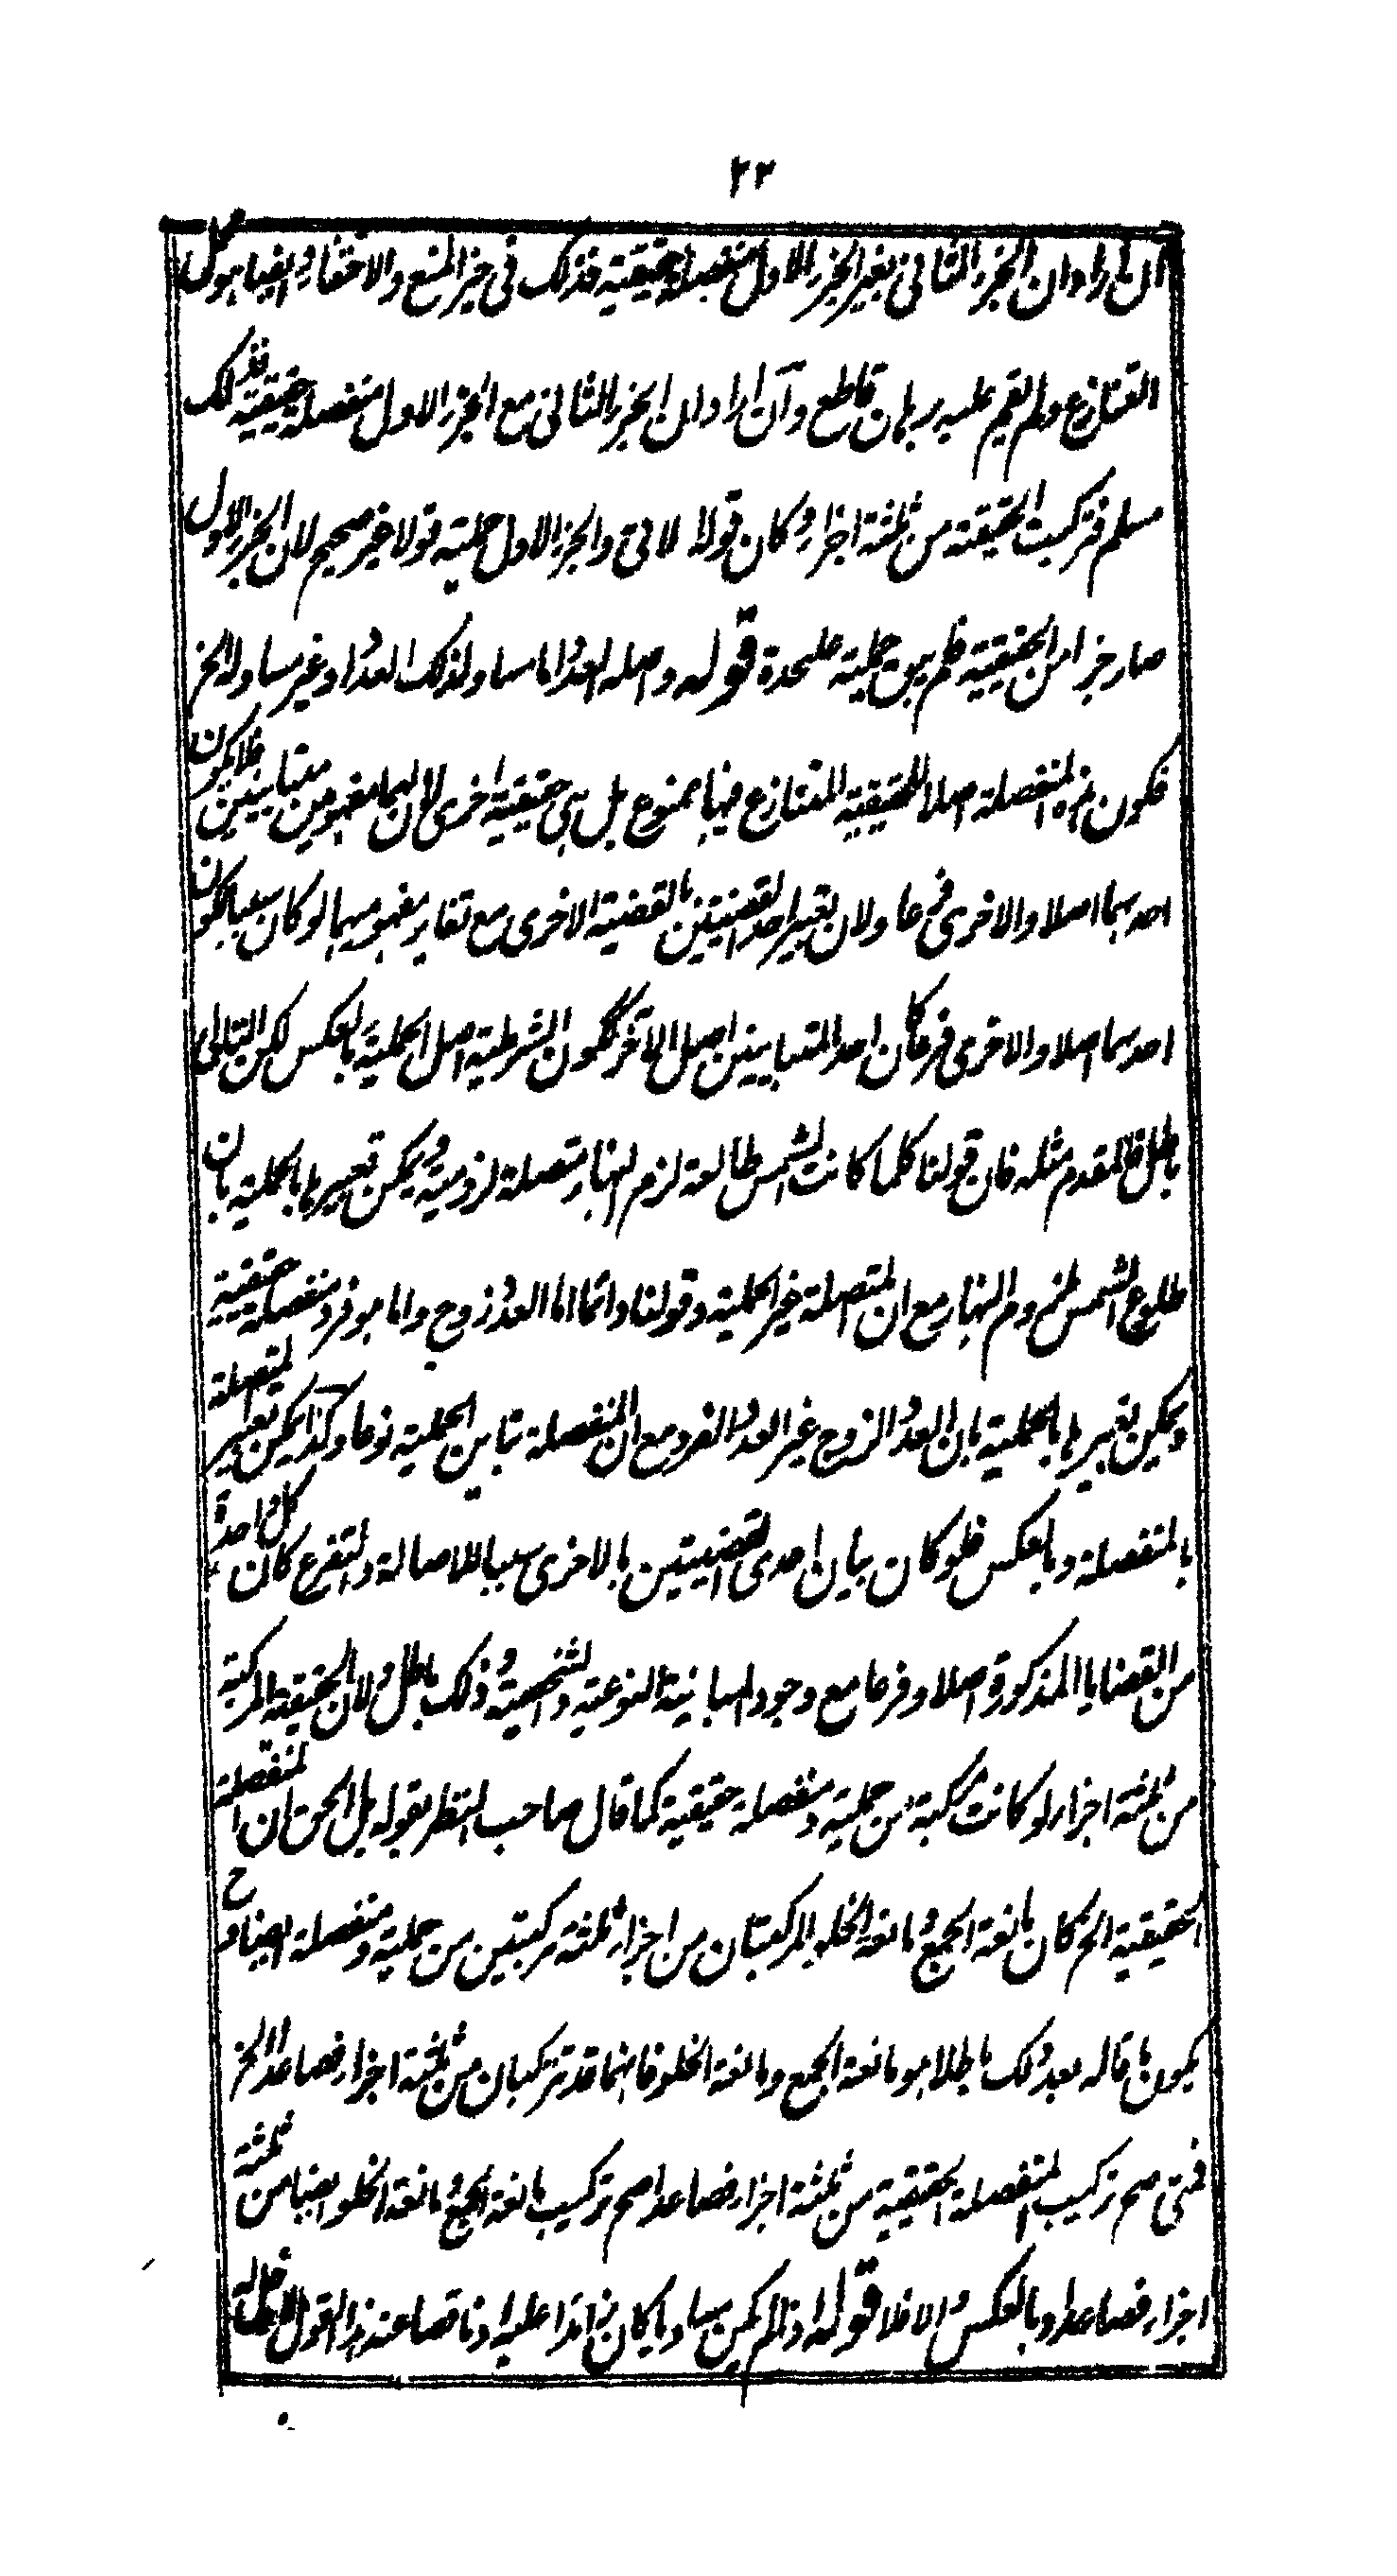 ٢٣
ان اراد ان الجزء الثاني بغير الجزء الاول منفصلة حقيقية فذلك في حيز المنع والاختفاء ايضا هو محل
التنازع ولم يقم عليه برهان قاطع وآن اراد ان الجزء الثاني مع الجزء الاول منفصلة حقيقية فذلك
مسلم فتركبت الحقيقة من ثلثة اجزاء وكان قولا والجزء الاول حملية قولا غير صحيح لان الجزء الاول
صار جزا من الحقيقية فلم يبق حملية علىحدة قوله واصله العدد اما مساو لذلك العدد او غير مساو له الخ
فكون هذه المنفصلة اصلا للحقيقية المتنازع فيها ممنوع بل هي حقيقية اخرى لان لهما مفهومين متباينين فلا يكون
احدهما اصلا والاخرى فرعا ولان تعبير احد القضيتين بالقضية الاخرى مع تغاير مفهوميهما لو كان سببا لكون
احدهما اصلا والاخرى فرعا كان احد المتباينين اصل الآخر فتكون الشرطية اصل الحملية بالعكس لكن التالي
باطل فالمقدم مثله فان قولنا كلما كانت الشمس طالعة لزم النهار متصلة لزومية ويمكن تعبيرها بالحملية بان
طلوع الشمس ملزوم النهار مع ان المتصلة غير الحملية وقولنا دائما اما العدد زوج واما هو فرد منفصلة حقيقية
ويمكن تعبيرها بالحملية بان العدد الزوج غير العدد الفرد مع ان المنفصلة تباين الحملية نوعا وكذا يمكن تعبير المتصلة
بالمنفصلة وبالعكس فلو كان بيان احدى القضيتين بالاخرى سببا للاصالة والتفرع كان كل واحدة
من القضايا المذكورة اصلا وفرعا مع وجود المباينة النوعية والشخصية وذلك باطل ولان الحقيقة المركبة
من ثلثة اجزاء لو كانت مركبة من حملية ومنفصلة حقيقية كما قال صاحب النظر بقوله بل الحق ان المنفصلة
الحقيقية الخ كان مانعة الجمع ومانعة الخلو المركبتان من اجزاء ثلثة مركبتين من حملية ومنفصلة ايضا وح
يكون ما قاله بعد ذلك باطلا هو مانعة الجمع ومانعة الخلو فانهما قد تتركبان من ثلثة اجزاء فصاعدا الخ
فمتى صح تركيب المنفصلة الحقيقية من ثلثة اجزاء فصاعدا صح تركيب مانعة الجمع ومانعة الخلو ايضا من ثلثة
اجزاء فصاعدا وبالعكس والا فلا قوله اذ لم يكن مساويا كان زائدا عليه او ناقصا عنه هذا القول